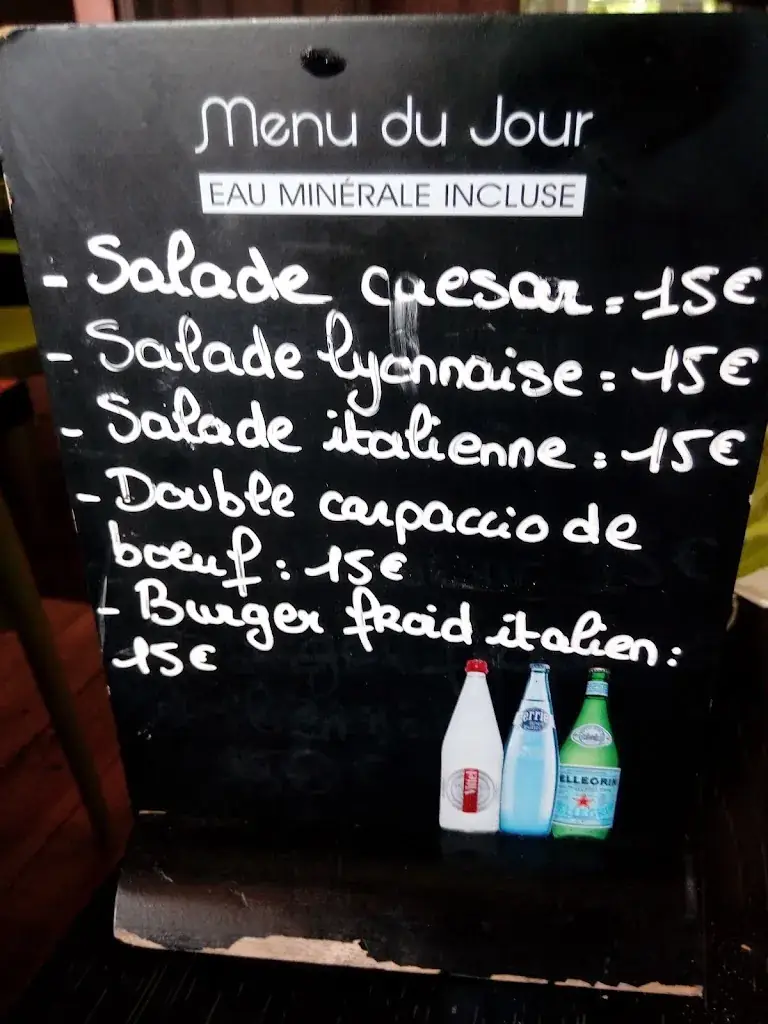 Menu du Jour
EAU MINÉRALE INCLUSE
- Salade caesar : 15€
- Salade lyonnaise : 15€
- Salade italienne : 15€
- Double carpaccio de
boeuf : 15€
- Burger froid italien :
15€
Vittel
Perrie
ELLEGRIN